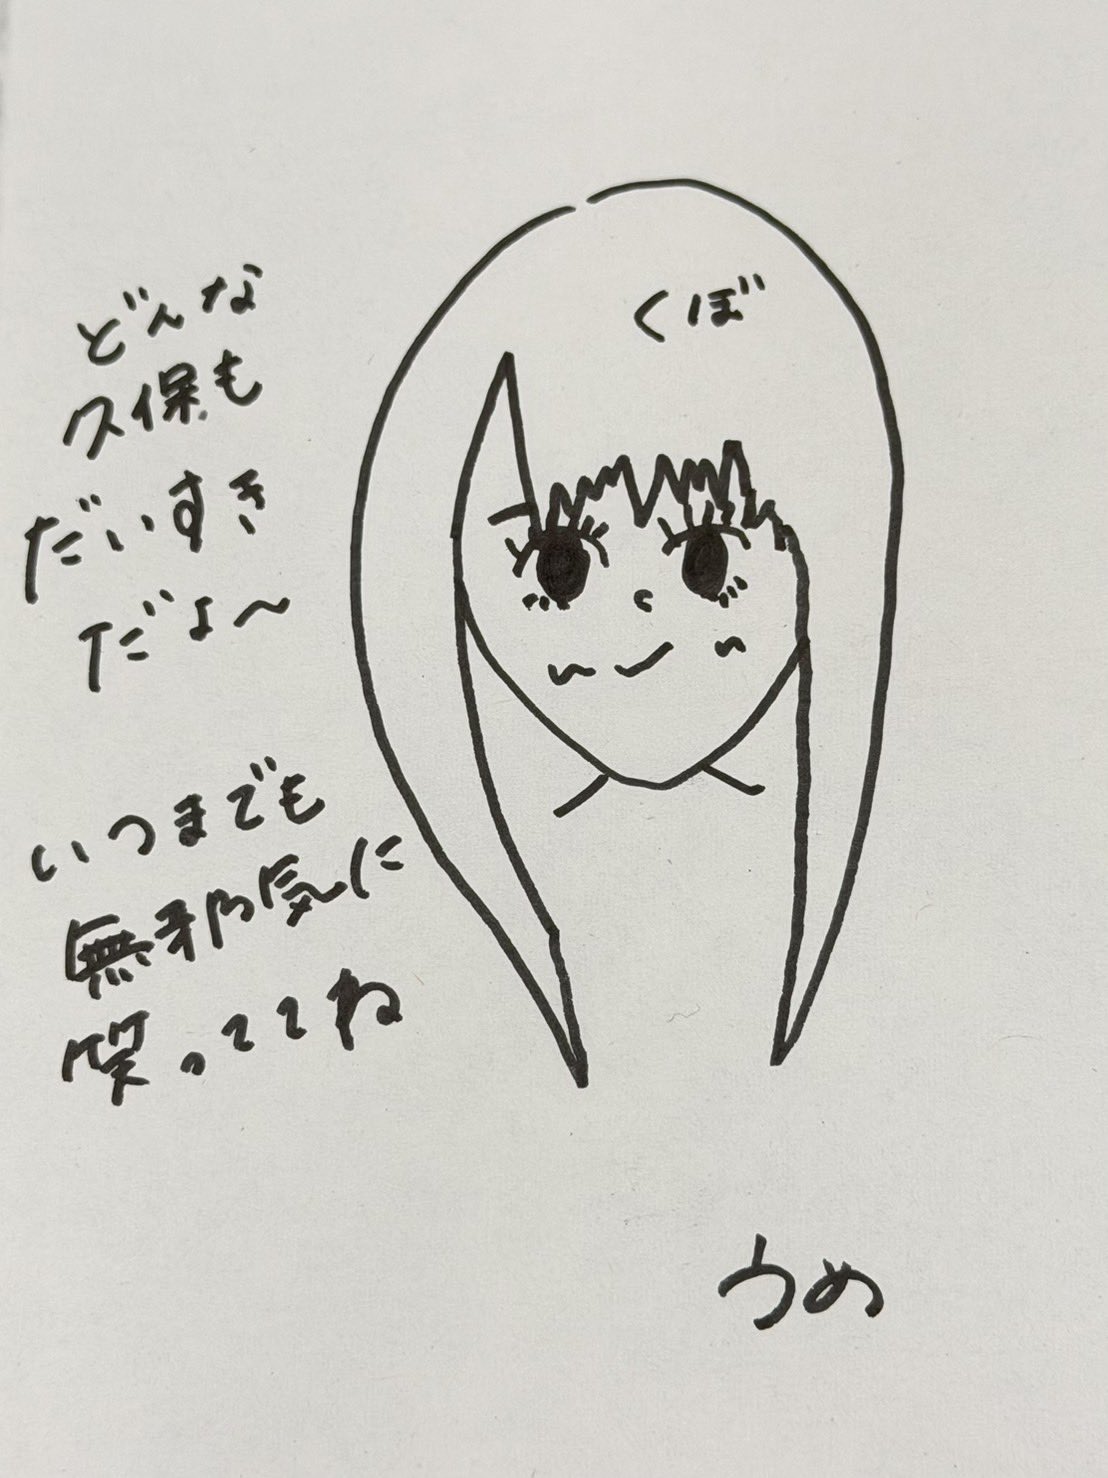 くぼ
どんな
久保も
だいすき
だよ〜
いつまでも
無邪気に
笑っててね
うめ